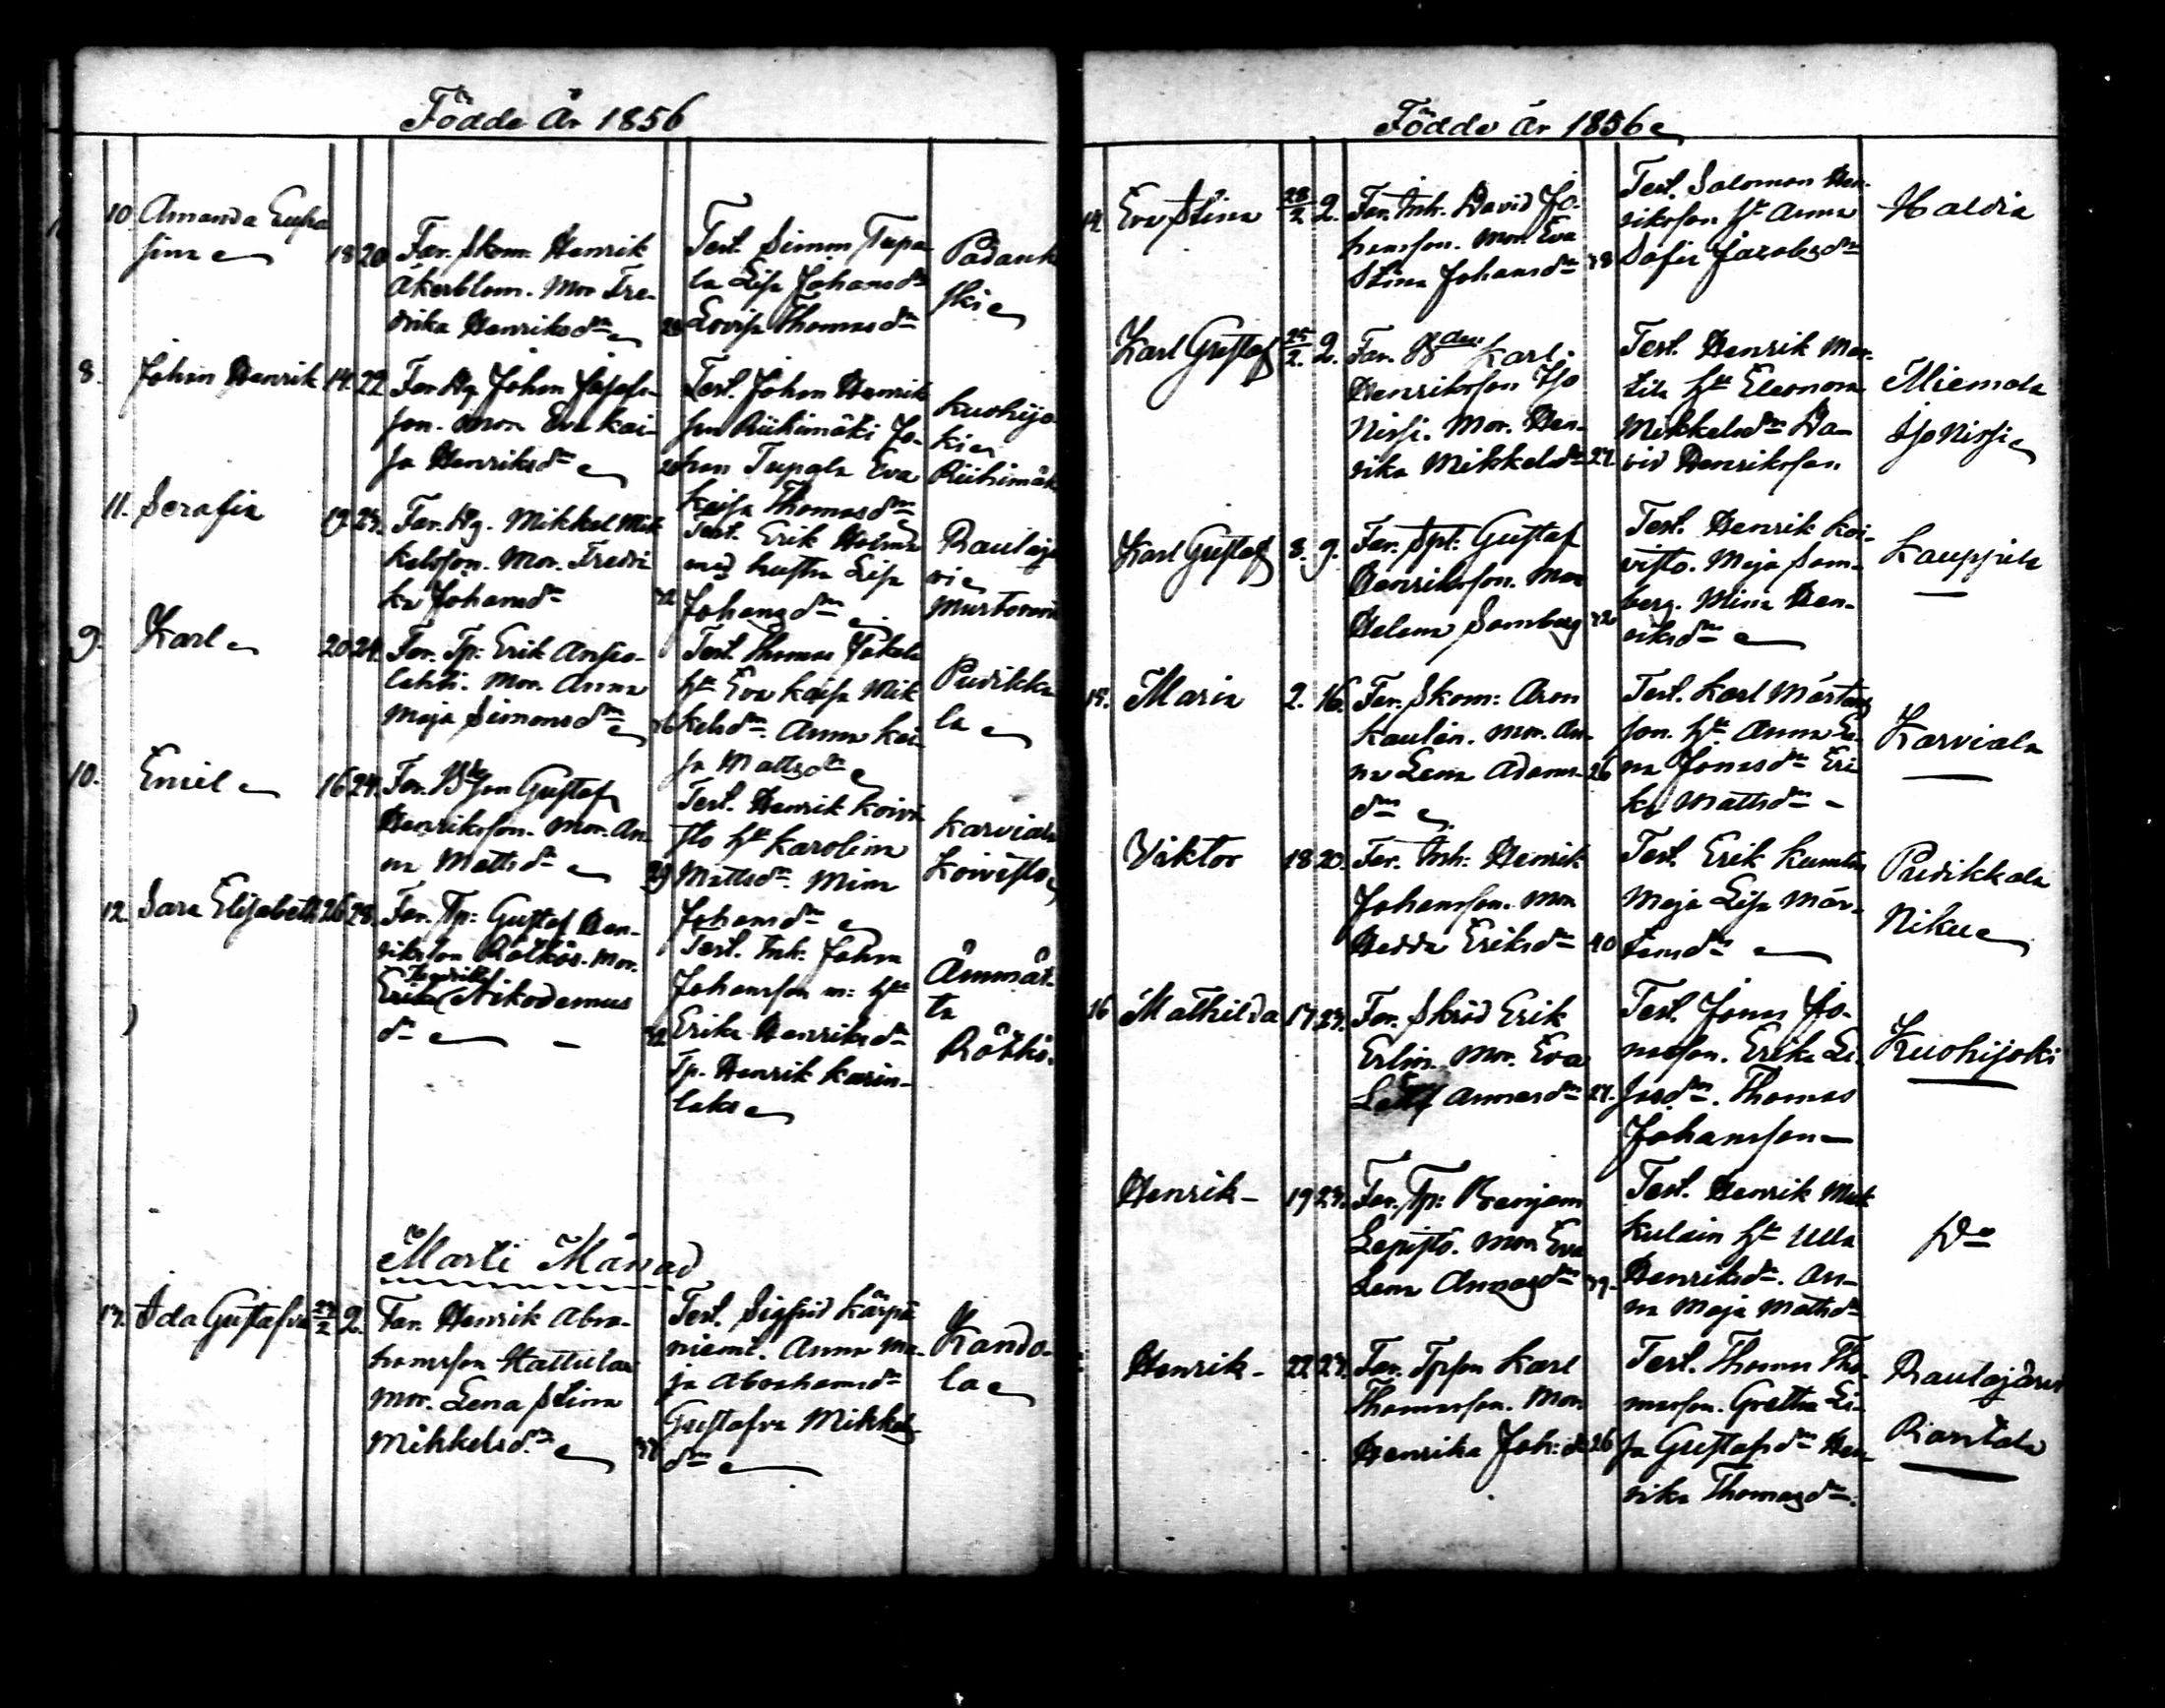 Födde År 1856
10. Amanda Eufro
sina
18 20. Far. Skom. Henrik
Åkerblom. Mor Fre-
drika Henriksdr
Test. Simm Tupa
la Lisa Johansdr
Lovisa Thomasdr
Padank
ski
8. Johan Henrik 14. 22. Far. Hg. Johan Josefs-
son. Mor Eva Kai-
sa Henriksdr
Test. Johan Henrik
son Riihimäki Jo-
han Tupala Eva
Kaisa Thomasdr
Kuohijo
ki
Riihimäk
11. Serafia 19. 24. Far. Hg. Mikkel Mik
kelsson. Mor. Fredri
ka Johansdr
Test. Erik
med hustru Lisa
Johansdr
Rautajä
vi
9. Karl 20 24. Far. Tp. Erik Ansio-
lahti. Mor. Anna
Maja Simonsdr
26
Test. Thomas Jokela
hu Eva Kaisa Mik
kelsdr. Anna Kai
sa Mattsdr
Pudikka
la
10. Emil 16 24. Far. Gustaf
Henriksson. Mor. An-
na Mattsdr
29
Test. Henrik Koivi
sto hu Karolina
Mattsdr. Mina
Johansdr
Karviala
Koivisto
12. Sara Elisabeth 26 28. Far. Tp: Gustaf Hen-
riksson Rötkös. Mor.
Erika Nikodemus
dr
Test. Inh. Johan
Johansson m: hu
Erika Henriksdr
Tp. Henrik Karin-
laks
Ämmät-
tä
Rötkö.
Marti Månad
13. Ida Gustafva 2. Far. Henrik Abra-
hamsson Hattula
Mor. Lena Stina
Mikkelsdr.
Test. Sigfrid Kärpä
niemi. Anna Ma-
ja Abrahamsdr
Gustafva Mikkels
dr
Kando-
la
Födde År 1856
14. Eva Stina 28/2 2. Far. Inh. David Jo-
hansson. Mor. Eva
Stina Johansdr
Test. Salomon Hen-
riksson hu Anna
Sofia Jacobsdr
Haldia
Karl Gustaf 25/2 2. Far. Karl
Henriksson Iso
Nissi. Mor. Hen-
rika Mikkelsdr 27.
Test. Henrik Mar-
tila hu Eleonora
Mikkelsdr Da-
vid Henriksson
Miemala
Iso Nissi
Karl Gustaf 8. 9. Far. Spl: Gustaf
Henriksson. Mor
Helena Samberg
Test. Henrik Koi-
visto. Maja Sam-
berg. Mina Hen-
riksdr
Kauppila
15. Maria 2. 16. Far. Skom: Aron
Kaulin. Mor. An-
na Lena Adams-
dr
26
Test. Karl Mårtens
son. hu Anna Le-
na Jonasdr Eri
ka Mattsdr
Karviala
Viktor 18 20. Far. Inh: Henrik
Johansson. Mor
Hedda Eriksdr 40
Test. Erik Kumlin
Maja Lisa Mår-
tensdr
Pudikkala
Niku
16 Mathilda 17. 24. Far. Skräd Erik
Erlin. Mor. Eva
Annasdr 27.
Test. Jonas Jo-
nasson. Erika Li-
sasdr. Thomas
Johansson
Kuohijoki
Henrik 19 24. Far. Tp: Benjam
Lepistö. Mor Eva
Lena Annasdr 39.
Test. Henrik Mak
kulain hu Ulla
Henriksdr. An-
na Maja Mattsdr
Do
Henrik 22 24. Far. Tpson Karl
Thomasson. Mor
Henrika Joh: dr 26
Test. Thomas Tho-
masson. Gretha Li-
sa Gustafsdr Hen
rika Thomasdr.
Rautajärvi
Rantala